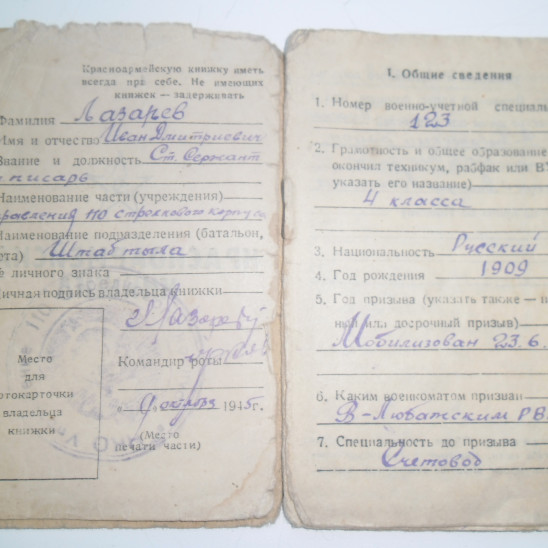 Красноармейскую книжку иметь
всегда при себе. Не имеющих
книжек — задерживать
Фамилия Лазарев
Имя и отчество Иван Дмитриевич
Звание и должность Ст. Сержант
писарь
Наименование части (учреждения)
правления 110 стрелкового корпуса
Наименование подразделения (батальон,
ота) Штаб тыла
личного знака
ичная подпись владельца книжки
Лазарев
Место
для
отокарточки
владельца
книжки
Командир роты
„9 октября 1945г.
(Место
печати части)
1. Общие сведения
1. Номер военно-учетной специаль
123
2. Грамотность и общее образование
окончил техникум, рабфак или В
указать его название)
4 класса
3. Национальность Русский
4. Год рождения 1909
5. Год призыва (указать также — н
ный или досрочный призыв)
Мобилизован 23.6.
6. Каким военкоматом призван
В-Любатским РВ
7. Специальность до призыва
Счетовод